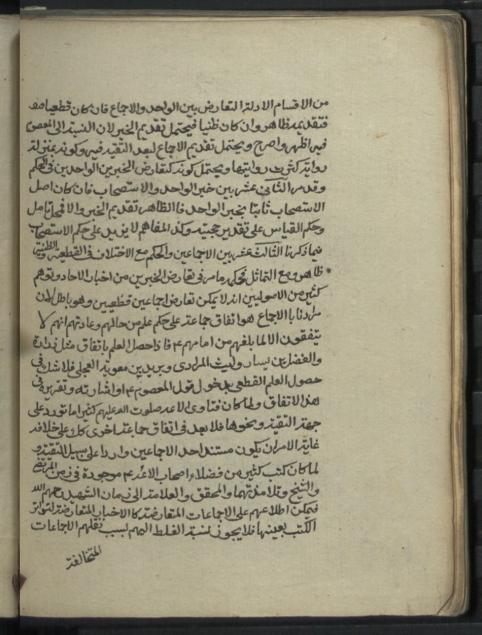 من الاقسام الادلة التعارض بين الواحد والاجماع فان كان قطعيا
فتقديمه ظاهر وان كان ظنيا فيحتمل تقديم الخبر لان النسبة الى المعصوم
فيه اظهر واصرح ويحتمل تقديم الاجماع لبعد التقية فيه وكونه بمنزلة
رواية كثرت رواتها ويحتمل كونه كتعارض الخبرين الواحدين في الحكم
وقد مر الثاني عشر بين خبر الواحد والاستصحاب فان كان اصل
الاستصحاب ثابتا بخبر الواحد فالظاهر تقديم الخبر والا فمحل تأمل
وحكم القياس على تقدير حجيته وكذا المفاهيم لا يزيد على حكم الاستصحاب
فيما ذكرنا الثالث عشر بين الاجماعين والحكم مع الاختلاف في القطعية والظنية
ظاهر ومع التماثل كحكم ما مر في تعارض الخبرين من اخبار الاحاد وتوهم
كثير من الاصوليين انه لا يمكن تعارض اجماعين قطعيين وهو باطل لان
مرادنا بالاجماع هو اتفاق جماعة على حكم علم من حالهم وعادتهم انهم لا
يتفقون الا لما بلغهم من امامهم ع فاذا حصل العلم باتفاق مثل زرارة
والفضيل بن يسار وليث المرادي وبريد بن معوية العجلي فلا شك في
حصول العلم القطعي بدخول قول المعصوم ع او اشارته وتقريره في
هذا الاتفاق ولما كان فتاوى الائمة صلوات الله عليهم كثيرا ما تورد على
جهة التقية ونحوها فلا بعد في اتفاق جماعة اخرى كك على خلافه
غاية الامر ان يكون مستند احد الاجماعين واردا على سبيل التقية و
لما كان كتب كثير من فضلاء اصحاب الائمة ع موجودة في زمن المرتضى
والشيخ وتلامذتهما والمحقق والعلامة الى زمان الشهيد رحمهم الله
فيمكن اطلاعهم على الاجماعات المتعارضة كالاخبار المتعارضة لتواتر
الكتب بعينها فلا يجوز نسبة الغلط اليهم بسبب نقلهم الاجماعات
المتخالفة